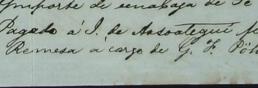 Importe de una caja de
Pagado a J. de Assoategui
Remesa a cargo de G. F.